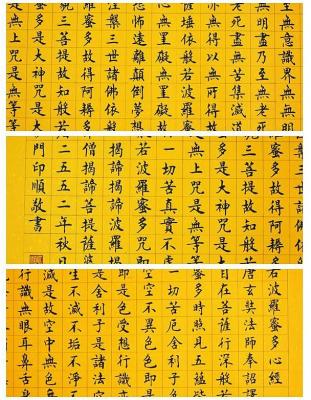 至無意識界無無明
無明盡乃至無老死
老死盡無苦集滅道
無得以無所得故
薩埵依般若波羅
罣礙無罣礙故無
恐怖遠離顛倒夢想
涅槃三世諸佛依般
蜜多故得阿耨多
三菩提故知般若
多是大神咒是大
是無上咒是無等等
三世諸佛依般
多故得阿耨多
三菩提故知般若
多是大神咒是大
是無上咒是無等
一切苦真實不虛
若波羅蜜多咒即
揭諦揭諦波羅揭
僧揭諦菩提薩婆
二五五二年秋日
門印順敬書
若波羅蜜多心經
唐玄奘法師奉詔譯
自在菩薩行深般
多時照見五蘊皆
一切苦厄舍利子
空空不異色色即
即是色受想行識
是舍利子是諸法空
生不滅不垢不淨
空中無色無
行識無眼耳鼻舌